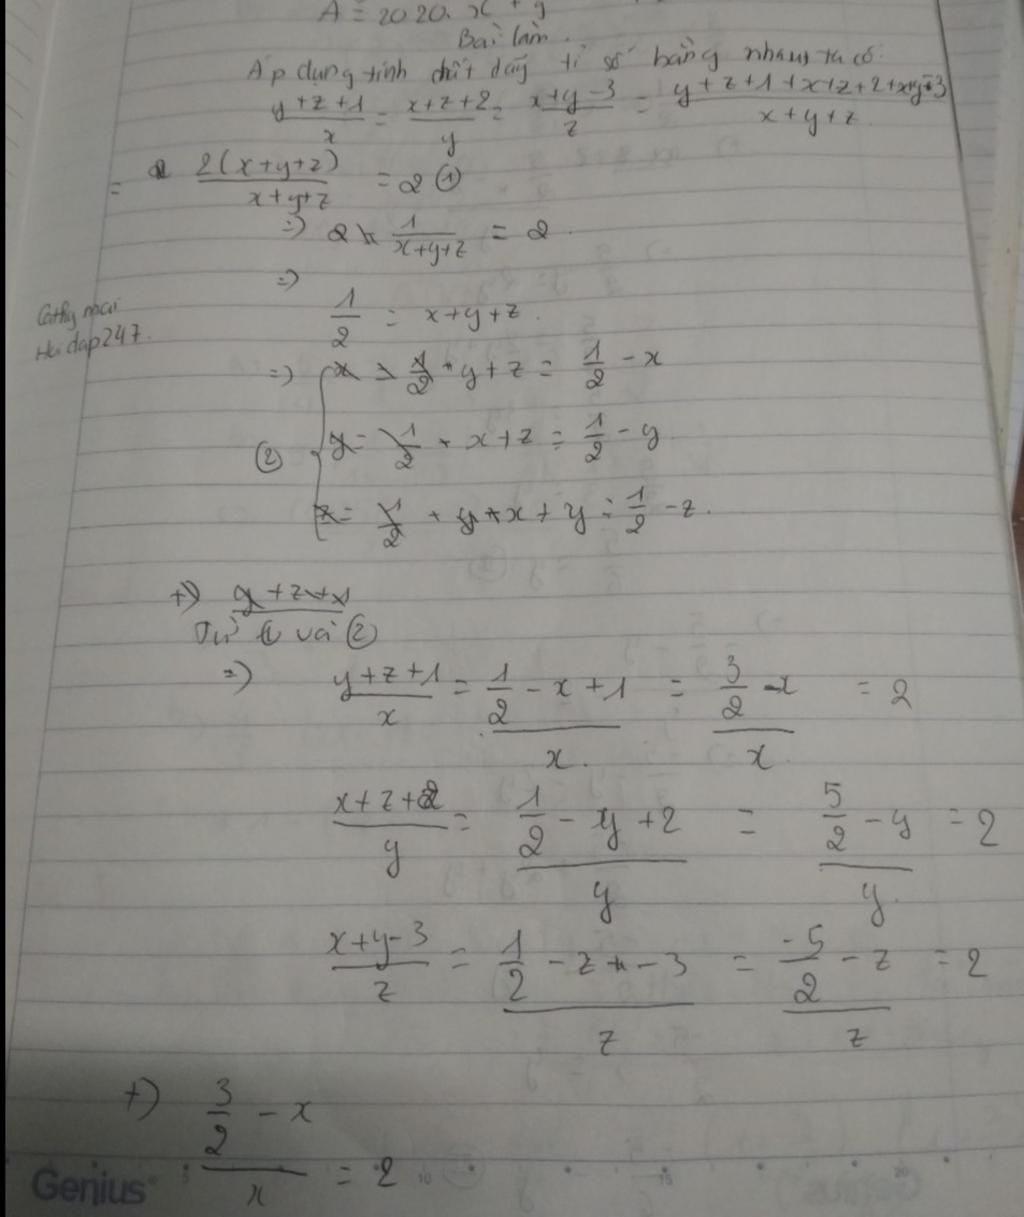 A = 2020. x + y
Bài làm.
Áp dụng tính chất dãy tỉ số bằng nhau ta có:
\frac{y+z+1}{x} = \frac{x+z+2}{y} = \frac{x+y-3}{z} = \frac{y+z+1+x+z+2+x+y-3}{x+y+z}
= \frac{2(x+y+z)}{x+y+z} = 2 ①
=) \frac{1}{x+y+z} = 2
=)
\frac{1}{2} = x+y+z.
Cathymai
Hoidap247.
=) y+z = \frac{1}{2} - x
② x+z = \frac{1}{2} - y
x+y = \frac{1}{2} - z.
+)
Từ ① và ②
=) \frac{y+z+1}{x} = \frac{\frac{1}{2} - x + 1}{x} = \frac{\frac{3}{2} - x}{x} = 2
\frac{x+z+2}{y} = \frac{\frac{1}{2} - y + 2}{y} = \frac{\frac{5}{2} - y}{y} = 2
\frac{x+y-3}{z} = \frac{\frac{1}{2} - z - 3}{z} = \frac{\frac{-5}{2} - z}{z} = 2
+) \frac{\frac{3}{2} - x}{x} = 2
Genius 5 10 15 20